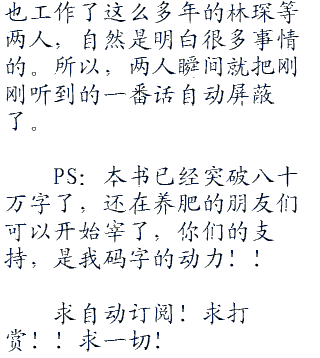 也工作了这么多年的林琛等
两人，自然是明白很多事情
的。所以，两人瞬间就把刚
刚听到的一番话自动屏蔽
了。
PS：本书已经突破八十
万字了，还在养肥的朋友们
可以开始宰了，你们的支
持，是我码字的动力！！
求自动订阅！求打
赏！！求一切！